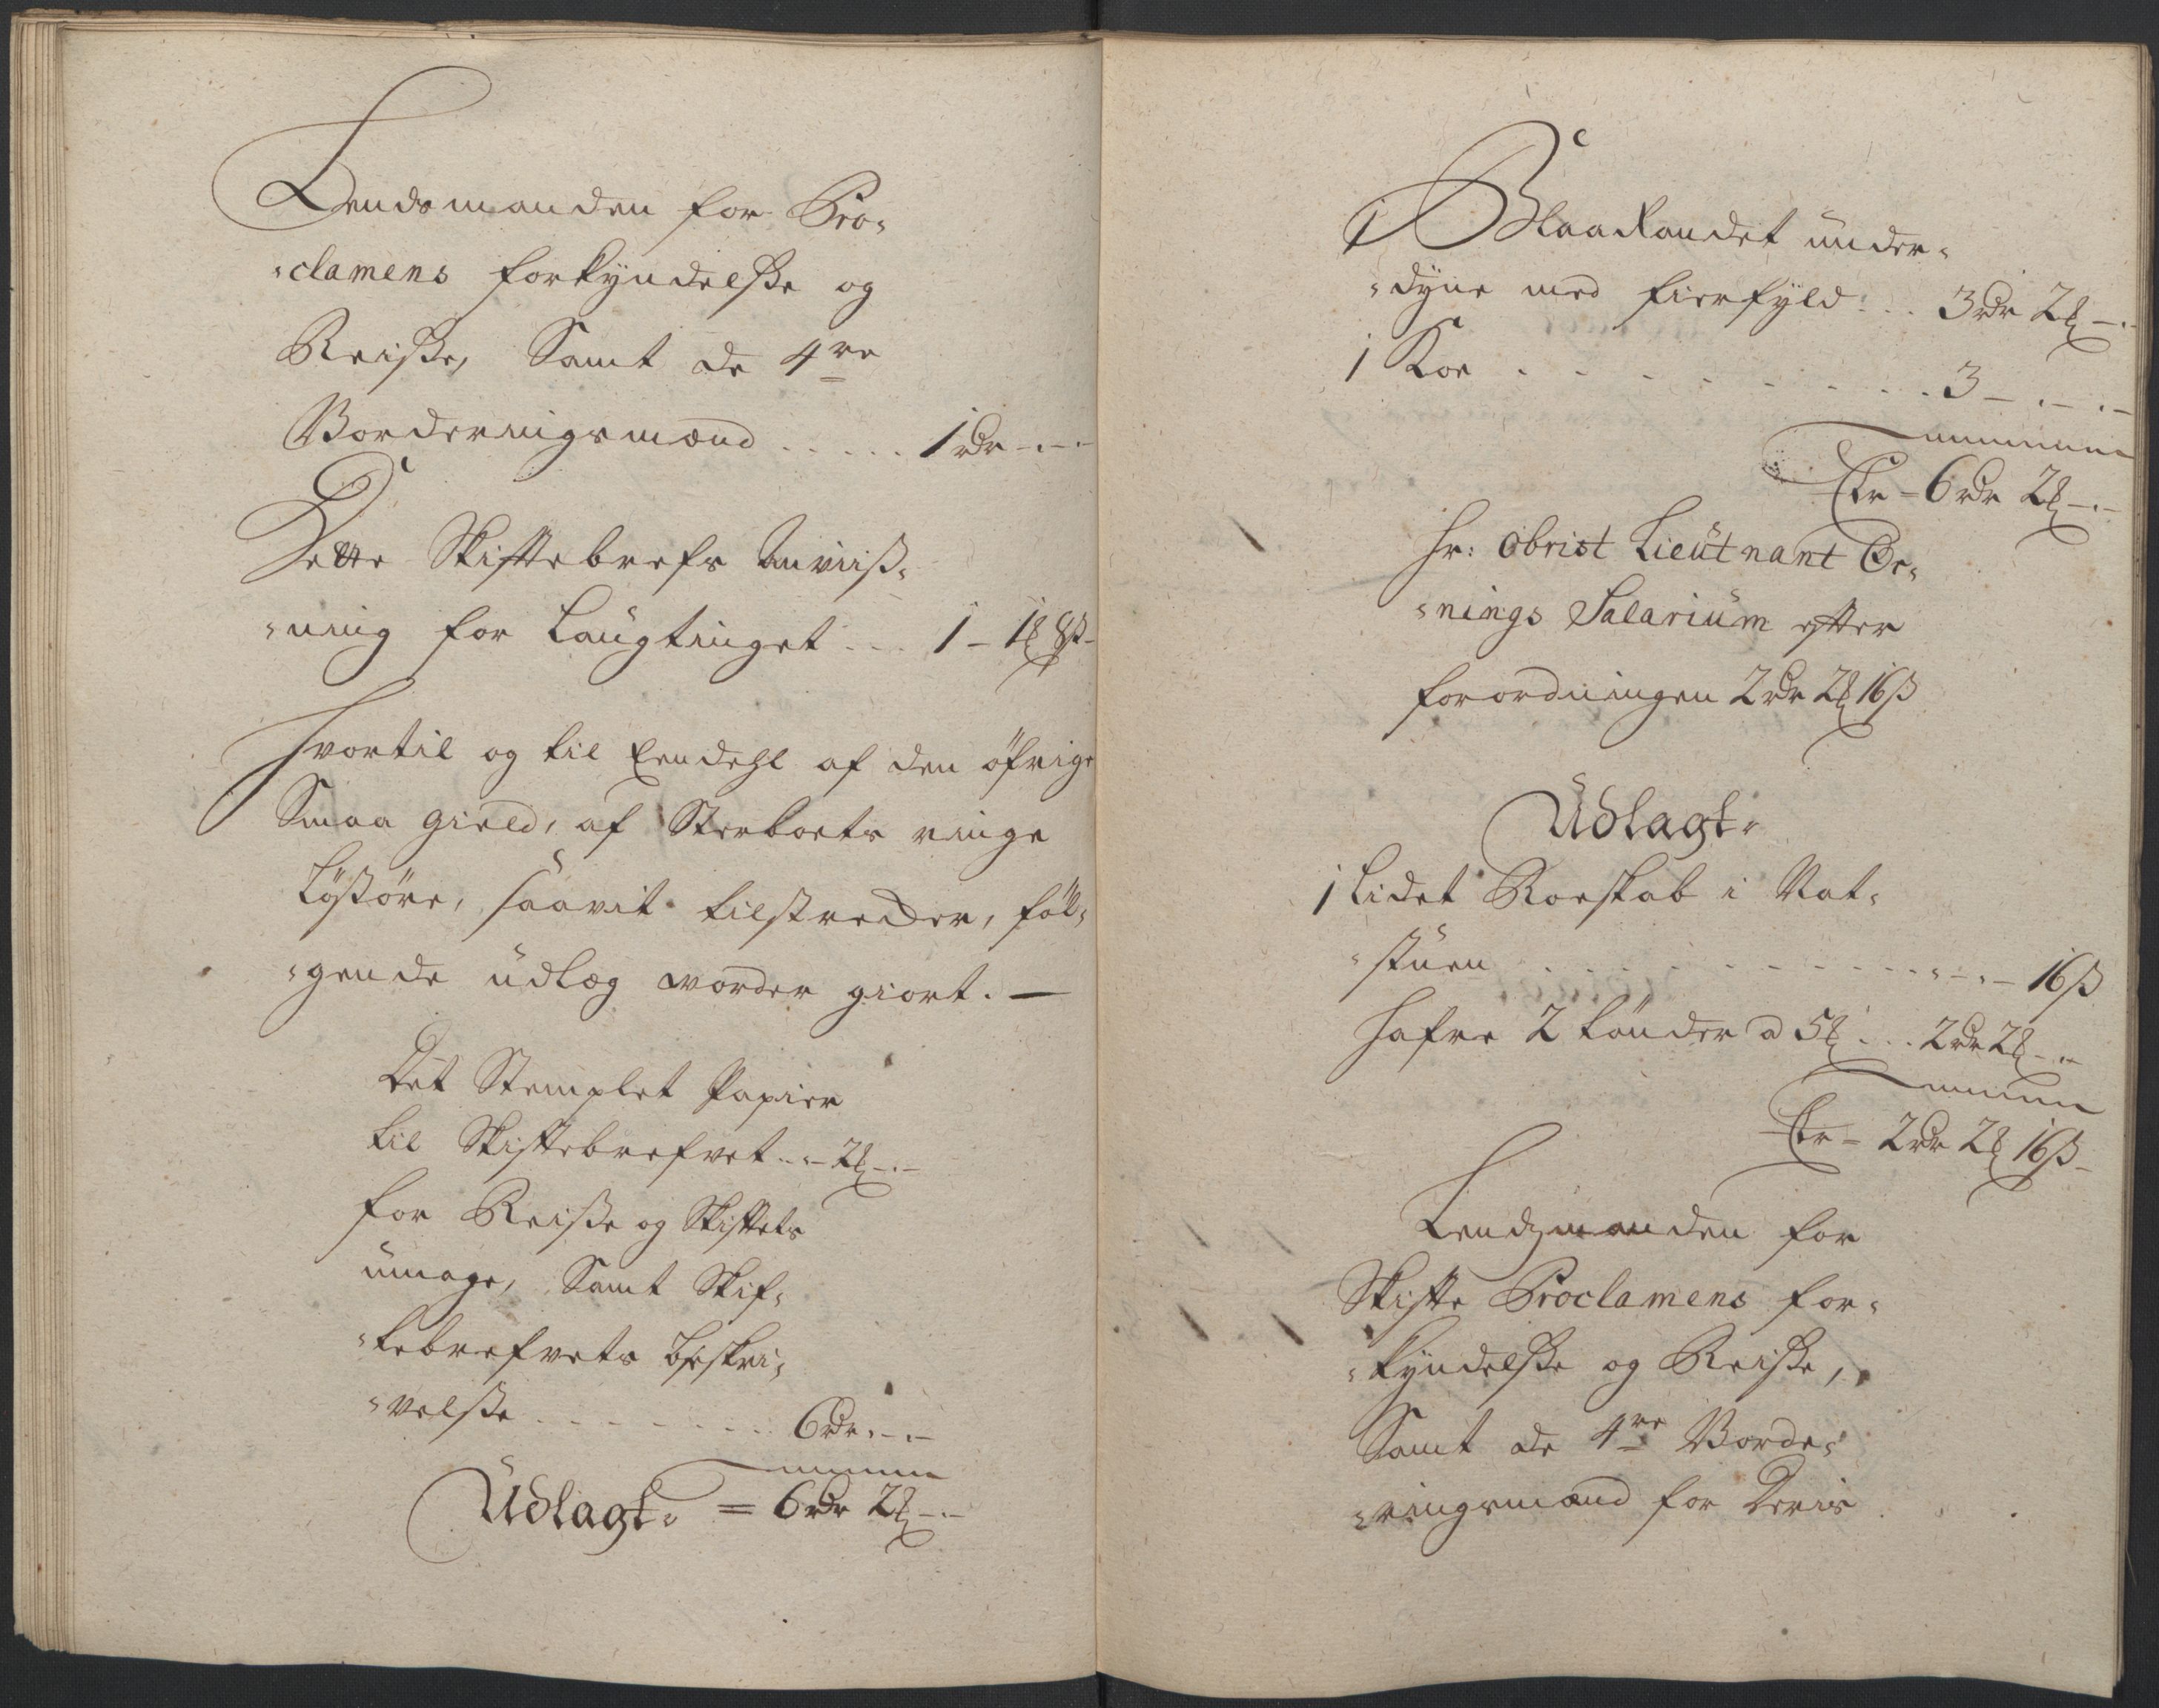 Lendsmanden for Pro-
-clamens forkyndelsße og
Reisße, Samt de 4re
Vorderingsmænd ..... 1 rdr - . -
Dette Skiftebrefs
-ning for Laugtinget ... 1 - 1 8ß -
Hvortil og til Eendehl af den öfrige
Smaa Gield, af Sterboets ringe
Lösöre, saavit tilstrecker, föl-
-gende udlæg worder giort. —
Det Stemplet Papier
til Skiftebrefvet ... 2 - . -
for Reisße og Skiftets
umage, Samt Skif-
-tebrefvets beskri-
-velsße ........ 6 rdr . - . -
Udlagt. = 6 rdr 2 - . -
1 Blaarandet under-
-dyne med fierfyld ... 3 rdr 2 - . -
1 Koe ........ 3 - . - . -
Er - 6 rdr 2 - . -
Hr: Obrist Lieutnant Ör-
-nings Salarium efter
forordningen 2 rdr 2 16 ß
Udlagt.
1 Lidet Roeskab i Nat-
-stuen ........ - . - 16 ß
Hafre 2 tönder a 5 ... 2 rdr 2 - . -
Er - 2 rdr 2 16 ß -
Lendzmanden for
Skifte Proclamens for-
-kyndelsße og Reisße,
Samt de 4re Vorde-
-ringsmænd for Deris